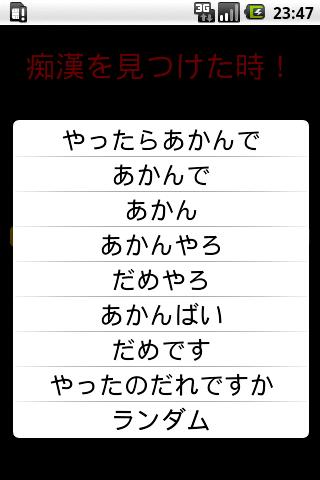 3G
23:47
痴漢を見つけた時！
やったらあかんで
あかんで
あかん
あかんやろ
だめやろ
あかんばい
だめです
やったのだれですか
ランダム